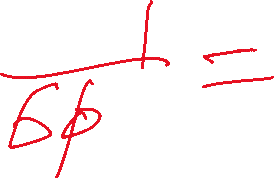 1 =
6φ